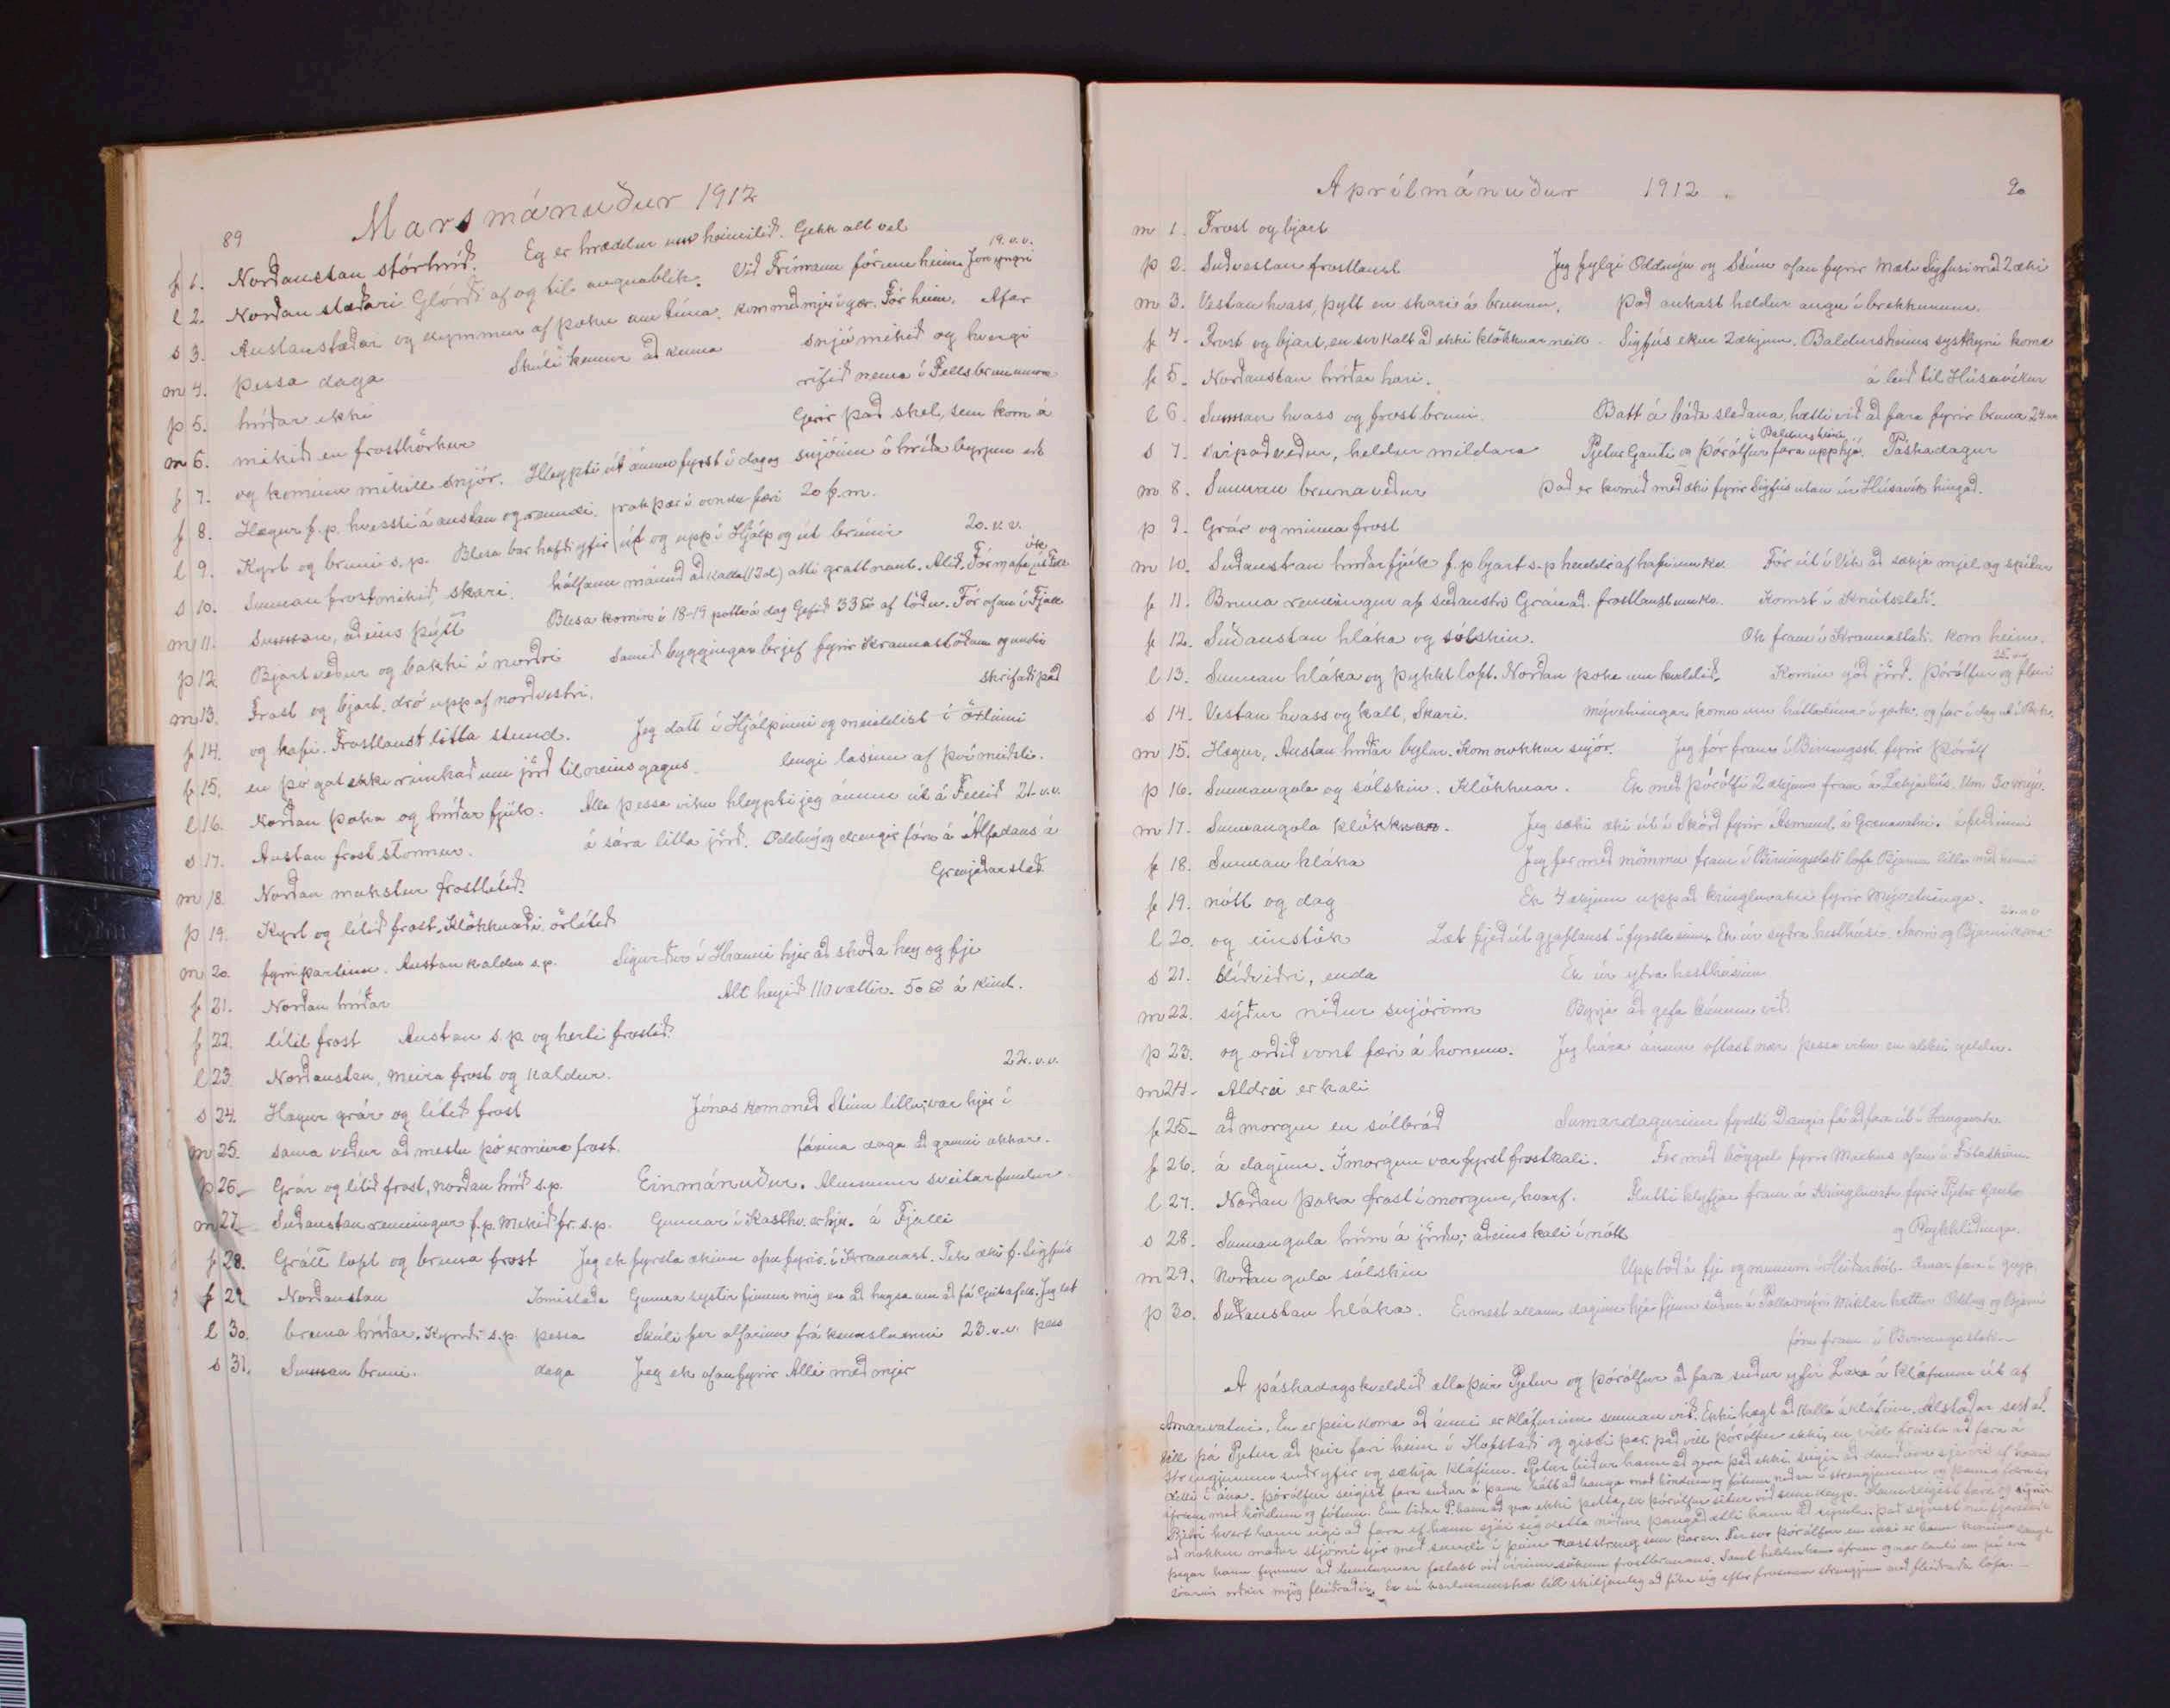 89
Marsmánuður 1912
f 1. Norðaustan stórhríð. Eg er hræddur um heimilið. Gekk alt vel
19. v.v.
l 2. Norðan slæðari Glórði af og til augnablik. Við Frímann fórum heim. Jón yngri
s 3. Austanslæðar og dymmur af þoku um tíma. kom með mjer í gær. Fór heim. Afar
m 4. þessa daga Skúli kemur að kenna snjó mikið og hvergi
þ 5. hríðar ekki rifið nema í Fellsbrununum
m 6. mikið en frosthörkur Gerir það skel, sem kom á
f 7. og kominn mikill snjór. Hleypti út ánum fyrst í dag og snjóinn í hríðarbyrjun
f 8. Hægur f.p. hvessti á austan og renndi. rak þær í vondu færi 20 f.m.
l 9. Kyrt og bruni s.p. Blesa bar hafti yfir út og upp í Hjálp og út brúnir 20. v.v.
s 10. Sunnan frostmikið, skari. hálfann mánuð að kalla (12 d.) átti grattnaut. Alið. Fór
m 11. Sunnan, aðeins þýtt Blesa komin í 18-19 potta á dag Gefið 33 ℔ af töðu. Fór ofan í Fjall
þ 12. Bjart veður og bakki í norðri Samið byggingarbrjef fyrir Hrannastöðum og undir
m 13. Frost og bjart. dró upp af norðvestri. skrifað það
f 14. og hafi. Frostlaust litla stund. Jeg datt í Hjálpinni og meiddist í öxlinni
f 15. en þó gat ekki rúnkað um jörð til neins gagns lengi lasinn af því meiðsli.
l 16. Norðan þoka og hríðar fjúk. Alla þessa viku hleypti jeg ánum út á Fellið 21. v.v.
s 17. Austan frost stormur. á sára litla jörð. Oddný og drengir fóru á Álfadans á
m 18. Norðan mukstur frostlítið. Grenjaðarstað
þ 19. Kyrt og lítið frost. Klökknaði örlítið
m 20. fyrripartinn. Austan kaldur s.p. Sigurður í Hrauni hjer að skoða hey og fje
f 21. Norðan hríðar Alt heyið 110 vættir. 50 ℔ á kind.
f 22. lítil frost Austan s.p. og herti frostið.
l 23. Norðaustan, meira frost og kaldur. 22. v.v.
s 24. Hægur grár og lítið frost Jónas kom með Stínu litlu; var hjer í
m 25. sama veður að mestu þó er meira frost. fáeina daga að gamni okkar.
þ 26. Grár og lítið frost, norðan hríð s.p. Einmánuður. Almennur sveitarfundur
m 27. Suðaustan renningur f.p. Mikið fr. s.p. Gunnar í Kasthv. er hjer. á Fjalli
f 28. Grátt lopt og bruna frost Jeg ek fyrsta ækinu ofan fyrir í Hrannast. Tek æki f. Sigfús
f 29. Norðaustan Tómislaða Gunna systir finnur mig er að hugsa um að fá Geitafell. Jeg let
l 30. bruna hríðar. Kyrrði s.p. þessa Skúli fer alfarinn frá kenslunni 23. v.v. þess
s 31. Sunnan bruni. daga Jeg ek ofanfyrir Alli með mjer
Aprílmánuður 1912. 90
m 1. Frost og bjart
þ 2. Suðvestan frostlaust Jeg fylgi Oddnýju og Stínu ofan fyrir Mæti Sigfúsi með 2 æki
m 3. Vestan hvass, þýtt en skari á brunum. Það aukast heldur augu í brekkunum.
f 4. Frost og bjart, en svo kalt að ekki klökknar neitt. Sigfús ekur 2 ækjum. Baldursheims systkyni koma
f 5. Norðaustan hríðar hari. á leið til Húsavíkur
l 6. Sunnan hvass og frost bruni. Batt á báða sleðana, hætti við að fara fyrir bruna 24. v.v
s 7. svipað veður, heldur mildara Pjetur Gauti og Þórólfur í Baldursheimi fara upphjá. Páskadagur
m 8. Sunnan bruna veður Það er komið með æki fyrir Sigfús utan úr Húsavík hingað.
þ 9. Grár og minna frost
m 10. Suðaustan hríðarfjúk f.p bjart s.p heiddi af hafi um kv. Fór út í Vík að sækja mjel og spítur
f 11. Bruna renningur af suðaustri Gránað. frostlaust um kv. Komst í Knútsstaði.
f 12. Suðaustan hláka og sólskin. Ók fram í Hrannastaði. kom heim.
25. v.v
l 13. Sunnan hláka og þykkt lopt. Norðan þoka um kveldið. Komin góð jörð. Þórólfur og fleiri
s 14. Vestan hvass og kalt, Skari. Mývetningar komu um háttatíma í gærkv. og far í dag út í Vík.
m 15. Hægur, Austan hríðar bylur. Kom nokkur snjór. Jeg fór fram í Birningsst. fyrir Þórólf
þ 16. Sunnan gola og sólskin. Klökknar. Ek með Þórólfi 2 ækjum fram á Lækjarhús. Um 30 mýv.
m 17. Sunnangola klökknar. Jeg sæki æki út í Skörð fyrir Ásmund á Grænavatni. á ferðinni
f 18. Sunnan hláka Jeg fer með mömmu fram í Birningsstaði lofa Bjarna litla með henni
f 19. nótt og dag Ek 4 ækjum upp að Kringluvatni fyrir Mývetninga.
26. v.v
l 20. og einstök Læt fjeð út gjaflaust í fyrsta sinn. Ek úr syðra hesthúsi. Mamma og Bjarni koma
s 21. blíðviðri, enda Ek úr ytra hesthúsinu
m 22. sýður niður snjórinn Byrja að gefa kúnum við.
þ 23. og orðið vont færi á honum. Jeg hára ánum oftast nær þessa viku en alski geldu.
m 24. Aldrei er kali
f 25. að morgni en sólbráð Sumardagurinn fyrsti Drengir fá að fara út í Langavatn
f 26. á daginn. Í morgun var fyrst frostkali. Fer með böggul fyrir Markús ofan í Fótaskinn
l 27. Norðan þoka frost í morgun, hvarf. Flutti klyfjar fram á Kringluvatn fyrir Pjetur Gauta
s 28. Sunnangola hrím á jörðu; aðeins kali í nótt og Reykhlíðinga.
m 29. Norðan gola sólskin Uppboð á fje og munum í Heiðarbót. Arnar fara í gegg.
þ 30. Suðaustan hláka. Er mest allann daginn hjá fjenu suður á Pallamýri Miklar hættur Oddný og Bjarni
fóru fram í Birningsstaði
Á páskadagskveldið ætla þeir Pjetur og Þórólfur að fara suður yfir Laxá á kláfnum út af
Arnarvatni. En er þeir koma að ánni er kláfurinn sunnan við. Ekki hægt að kalla á kláfinn. Alstaðar sest að.
Vill þá Pjetur að þeir fari heim í Hofstaði og gisti þar. Það vill Þórólfur ekki, en vill freista að fara á
strengjunum suðryfir og sækja kláfinn. Pjetur biður hann að gera það ekki, segir að dauðinn sje vís ef hann
detti í ána. Þórólfur segist fara suður á þann hátt að hanga með höndum og fótum neðan í strengjunum og þannig fikra sig
áfram með höndum og fótum. Enn biður P. hann að gera ekki þetta, en Þórólfur situr við sinn keyp.
Pjetri hvert hann eigi að fara ef hann sjái sig detta niður þangað ætli hann að synda.
að nokkur maður stjórni sjer með sundi í þeim kaststreng sem þar er. Fer svo Þórólfur en ekki er hann kominn langt
þegar hann finnur að lendurnar festast við vírinn sökum frostbrunans. Samt heldur hann áfram og nær landi en þá eru
lófarnir orðnir mjög fleiðraðir. Er sú karlmennska lítt skiljanleg að fika sig eftir frosnum strengjum með fleiðraða lófa.